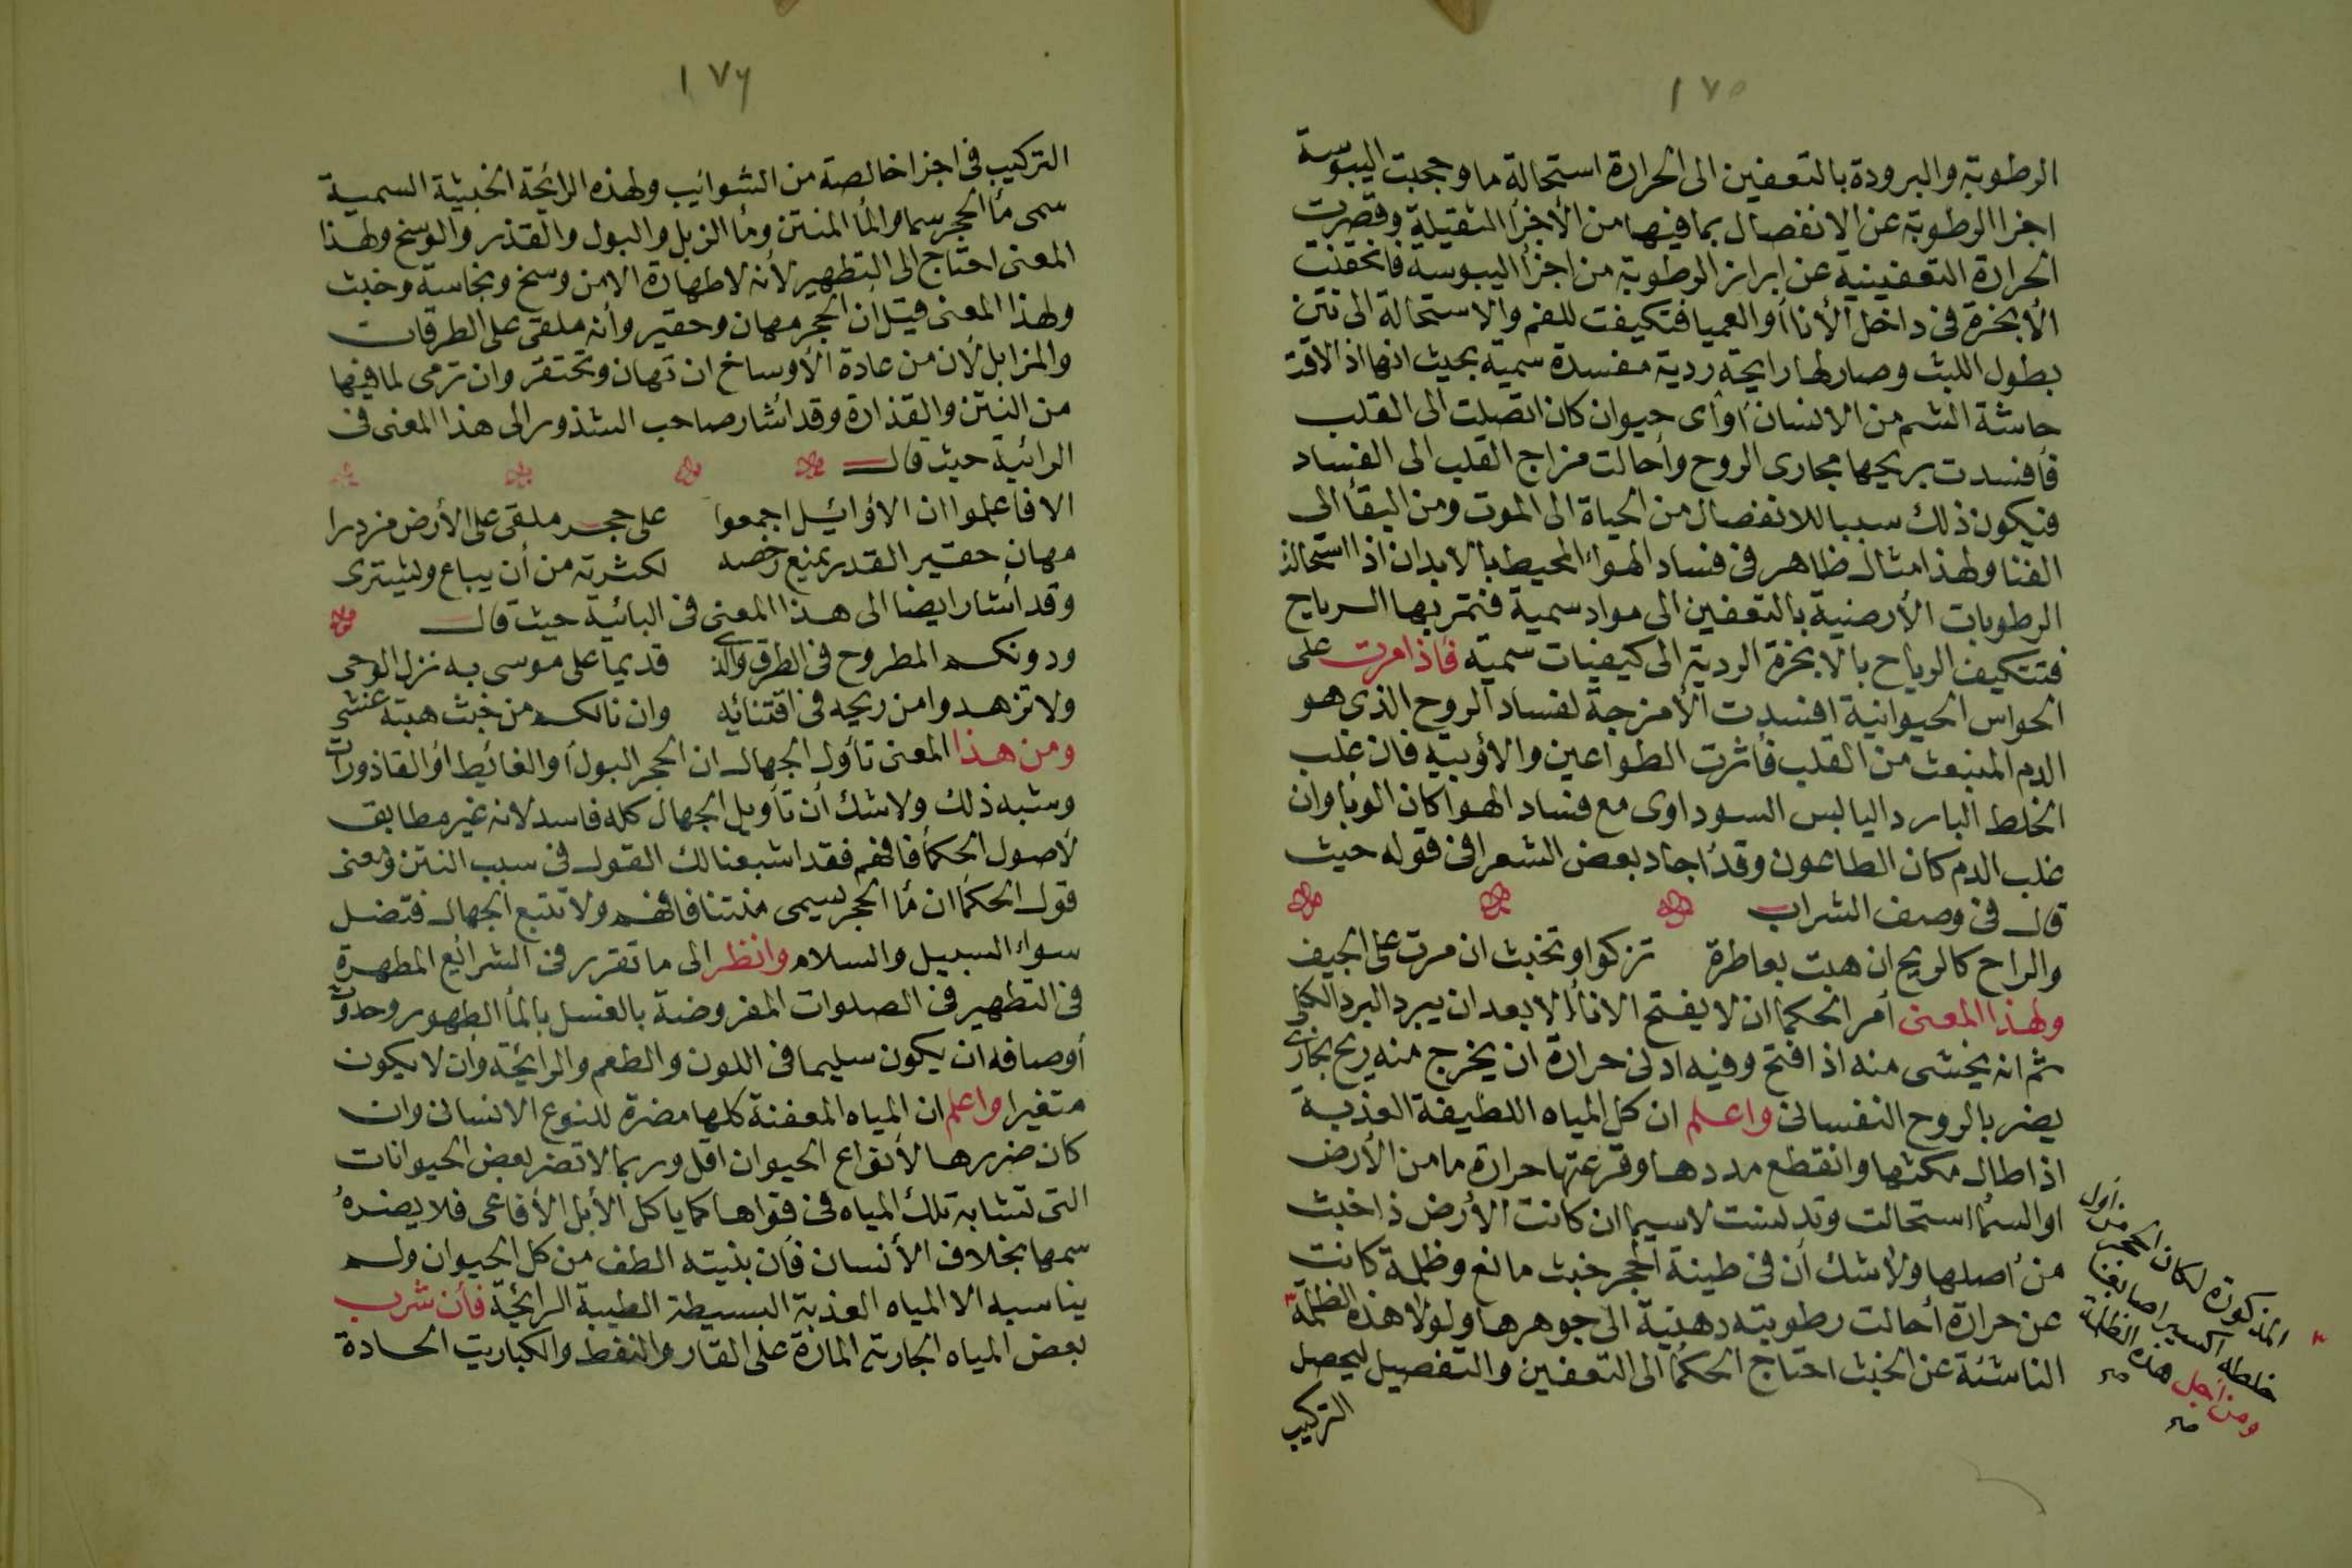 ١٧٥
الرطوبة والبرودة بالتعفين الى الحرارة استحالة ما وحجبت اليبوسة
اجزا الرطوبة عن الانفصال بما فيها من الأجزأ الثقيلة وقصرت
الحرارة التعفينية عن ابراز الرطوبة من اجزأ اليبوسة فانحقنت
الأبخرة في داخل الأناأ أو العميا فتكيفت للغم والاستحالة الى نتن
بطول اللبث وصار لها رايحة ردية مفسدة سمية بحيث انها اذا لاقت
حاسة الشم من الانسان أو أى حيوان كان اتصلت الى القلب
فأفسدت بريحها مجارى الروح وأحالت مزاج القلب الى الفساد
فيكون ذلك سببا للانفصال من الحياة الى الموت ومن البقأ الى
الفنا ولهذا مثال ظاهر فى فساد الهواء المحيط بالابدان اذا استحالت
الرطوبات الأرضية بالتعفين الى مواد سمية فتمر بها الرياح
فتتكيف الرياح بالابخرة الردية الى كيفيات سمية فأذا مرت على
الحواس الحيوانية افسدت الأمزجة لفساد الروح الذى هو
الدم المنبعث من القلب فأثرت الطواعين والأوبية فان غلب
الخلط البارد اليابس السوداوى مع فساد الهوأ كان الوبا وان
غلب الدم كان الطاعون وقد اجاد بعض الشعرا فى قوله حيث
قال فى وصف الشراب
والراح كالريح ان هبت بعاطرة تزكوا وتخبث ان مرت على الجيف
ولهذا المعنى أمر الحكما ان لا يفتح الاناأ الا بعد ان يبرد البرد الكلى
ثم انه يخشى منه اذا فتح وفيه ادنى حرارة ان يخرج منه ريح بخارى
يضر بالروح النفسانى واعلم ان كل المياه اللطيفة العذبة
اذا طال مكثها وانقطع مددها وقرعتها حرارة ما من الأرض
او السمأ استحالت وتدلست لاسيما ان كانت الأرض ذا خبث
من أصلها ولا شك أن فى طينة الحجر خبث مانع وظلمة كانت
عن حرارة أحالت رطوبته دهنية الى جوهرها ولولا هذه الظلمة
الناشئة عن الخبث احتاج الحكمأ الى التعفين والتفصيل ليحصل
التركيب
المذكورة لكان الحجر من أول
خلطه اكسيرا صابغا
ومن أجل هذه الظلمة
١٧٦
التركيب فى اجزا خالصة من الشوائب ولهذه الرائحة الخبيثة السمية
سمى مأ الحجر سما والمأ المنتن ومأ الزبل والبول والقذر والوسخ ولهذا
المعنى احتاج الى التطهير لأنه لا طهارة الا من وسخ ونجاسة وخبث
ولهذا المعنى قيل أن الحجر مهان وحقير وأنه ملقى على الطرقات
والمزابل لأن من عادة الأوساخ ان تهان وتحتقر وان ترمى لما فيها
من النتن والقذارة وقد اشار صاحب الشذور الى هذا المعنى فى
الرائية حيث قال
الا فاعلموا ان الأوائيل اجمعوا على حجر ملقى على الأرض مزدرا
مهان حقير القدر يمنع رخصه لكثرته من أن يباع ويشترى
وقد أشار ايضا الى هذا المعنى فى اليائية حيث قال
ودونكم المطروح فى الطرق والذى قديما على موسى به نزل الوحى
ولا تزهدوا من ريحه فى اقتنائه وان نالكم من خبث هبته غشى
ومن هذا المعنى تأول الجهال ان الحجر البول أو الغائيط أو القاذورات
وشبه ذلك ولا شك أن تأويل الجهال كله فاسد لانه غير مطابق
لأصول الحكمأ فافهم فقد اشبعنا لك القول فى سبب النتن ومعنى
قول الحكمأ ان مأ الحجر يسمى منتنا فافهم ولا تتبع الجهال فتضل
سواء السبيل والسلام وانظر الى ما تقرر فى الشرائع المطهرة
فى التطهير فى الصلوات المفروضة بالغسل بالمأ الطهور وحدوث
أوصافه ان يكون سليما فى اللون والطعم والرائحة وأن لا يكون
متغيرا واعلم ان المياه المعفنة كلها مضرة للنوع الانسانى وان
كان ضررها لأنواع الحيوان اقل وربما لا تضر بعض الحيوانات
التى تشابه تلك المياه فى قواها كما ياكل الأبل الأفاعى فلا يضره
سمها بخلاف الأنسان فأن بنيته الطف من كل الحيوان ولم
يناسبه الا المياه العذبة البسيطة الطيبة الرائحة فأن شرب
بعض المياه الجارية المارة على القار والنفط والكباريت الحادة